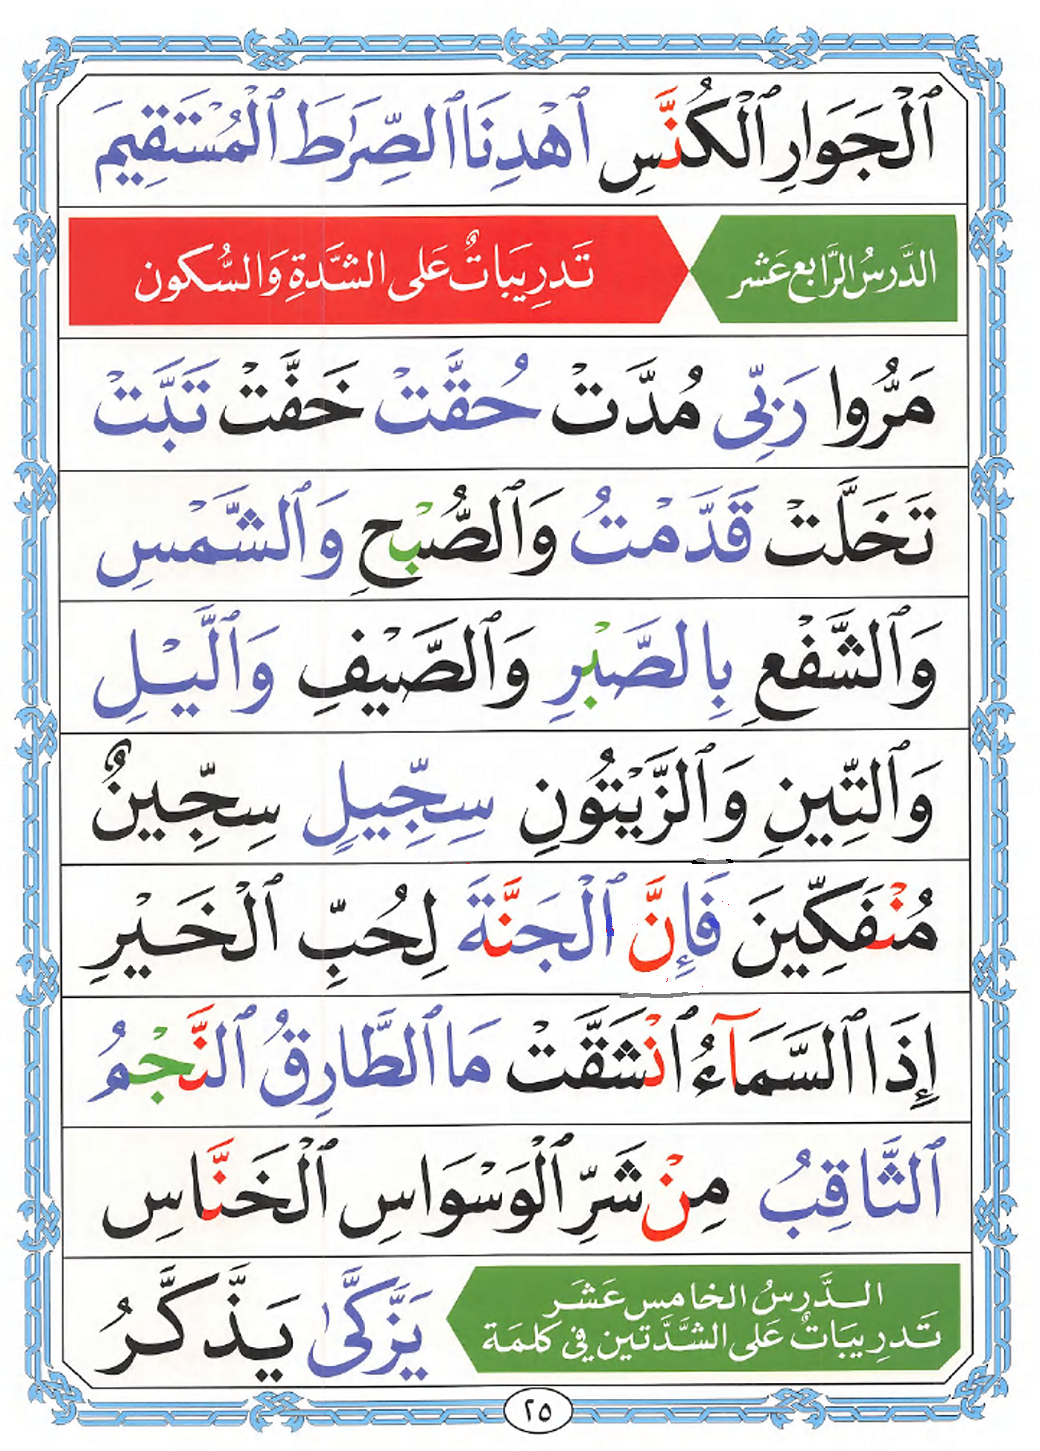 ٱلْجَوَارِ ٱلْكُنَّسِ ٱهْدِنَا ٱلصِّرَٰطَ ٱلْمُسْتَقِيمَ
الدَّرسُ الرَّابِع عَشَر تَدرِيبَاتٌ عَلى الشَّدَّةِ وَالسُّكون
مَرُّوا رَبِّى مُدَّتْ حُقَّتْ خَفَّتْ تَبَّتْ
تَخَلَّتْ قَدَّمْتُ وَٱلصُّبْحِ وَٱلشَّمْسِ
وَٱلشَّفْعِ بِالصَّبْرِ وَٱلصَّيْفِ وَٱلَّيْلِ
وَٱلتِّينِ وَٱلزَّيْتُونِ سِجِّيلٍ سِجِّينٌ
مُنْفَكِّينَ فَإِنَّ ٱلْجَنَّةَ لِحُبِّ ٱلْخَيْرِ
إِذَا ٱلسَّمَآءُ ٱنْشَقَّتْ مَا ٱلطَّارِقُ ٱلنَّجْمُ
ٱلثَّاقِبُ مِنْ شَرِّ ٱلْوَسْوَاسِ ٱلْخَنَّاسِ
الــدَّرسُ الخامس عَشَـر
تَـدرِيبَاتٌ عَلى الشَّدَّتين فِي كلمَة
يَزَّكَّىٰ يَذَّكَّرُ
٢٥